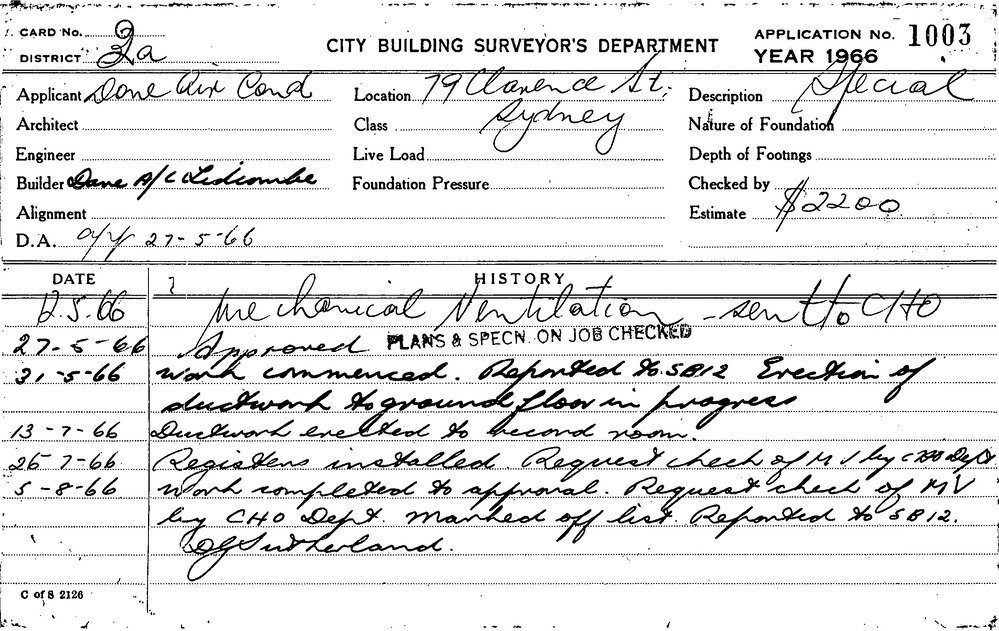 CARD No.
DISTRICT 2a
CITY BUILDING SURVEYOR'S DEPARTMENT
APPLICATION No. 1003
YEAR 1966
Applicant Dane Air Cond
Location 79 Clarence St;
Sydney
Description Special
Architect
Class
Nature of Foundation
Engineer
Live Load
Depth of Footings
Builder Dane A/C Lidcombe
Foundation Pressure
Checked by
Alignment
Estimate $2200
D.A. 27-5-66
DATE HISTORY
12.5.66 Mechanical Ventilation - sent to CHO
27-5-66 Approved PLANS & SPECN. ON JOB CHECKED
31-5-66 Work commenced. Reported to SB12 Erection of
ductwork to ground floor in progress
13-7-66 Ductwork erected to record room.
26 7-66 Registers installed. Request check of MV by Dept.
5-8-66 Work completed to approval. Request check of MV
by CHO Dept. Marked off list. Reported to SB12.
Sutherland.
C of S 2126